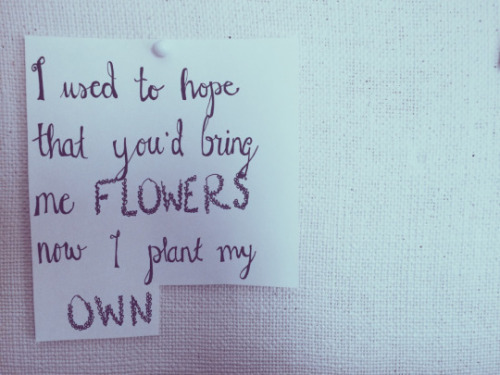 I used to hope
that you'd bring
me FLOWERS
now I plant my
OWN